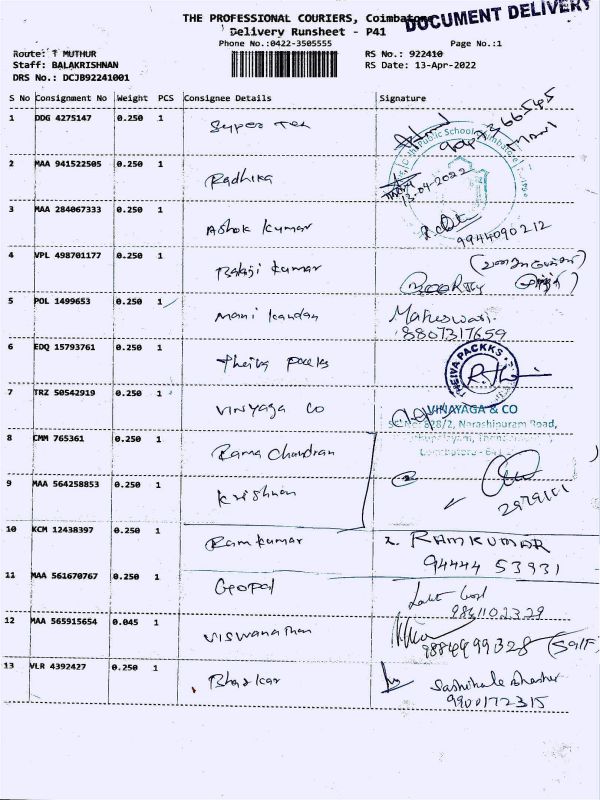 THE PROFESSIONAL COURIERS, Coimbatore
DOCUMENT DELIVERY
Delivery Runsheet - P41
Phone No.:0422-3505555
Page No.:1
Route: T MUTHUR
RS No.: 922410
Staff: BALAKRISHNAN
RS Date: 13-Apr-2022
DRS No.: DCJB92241001
S No Consignment No Weight PCS Consignee Details Signature
1 DDG 4275147 0.250 1 Super Tex
2 MAA 941522505 0.250 1 Radhika
13-04-2022
3 MAA 284067333 0.250 1 Ashok Kumar
9944090212
4 VPL 498701177 0.250 1 Balaji Kumar
5 POL 1499653 0.250 1 Mani kandan Maheswari
8807317659
6 EDQ 15793761 0.250 1 Theiva packs
THEIVA PACKKS
7 TRZ 50542919 0.250 1 Vinyaga Co
VINAYAGA & CO
828/2, Narashipuram Road,
8 CMM 765361 0.250 1 Rama Chandran
9 MAA 564258853 0.250 1 Krishnan
10 KCM 12438397 0.250 1 Ramkumar RAMKUMAR
94444 53931
11 MAA 561670767 0.250 1 Gopal
12 MAA 565915654 0.045 1 Viswanathan
9884699328 (Self)
13 VLR 4392427 0.250 1 Bhaskar
9900172315